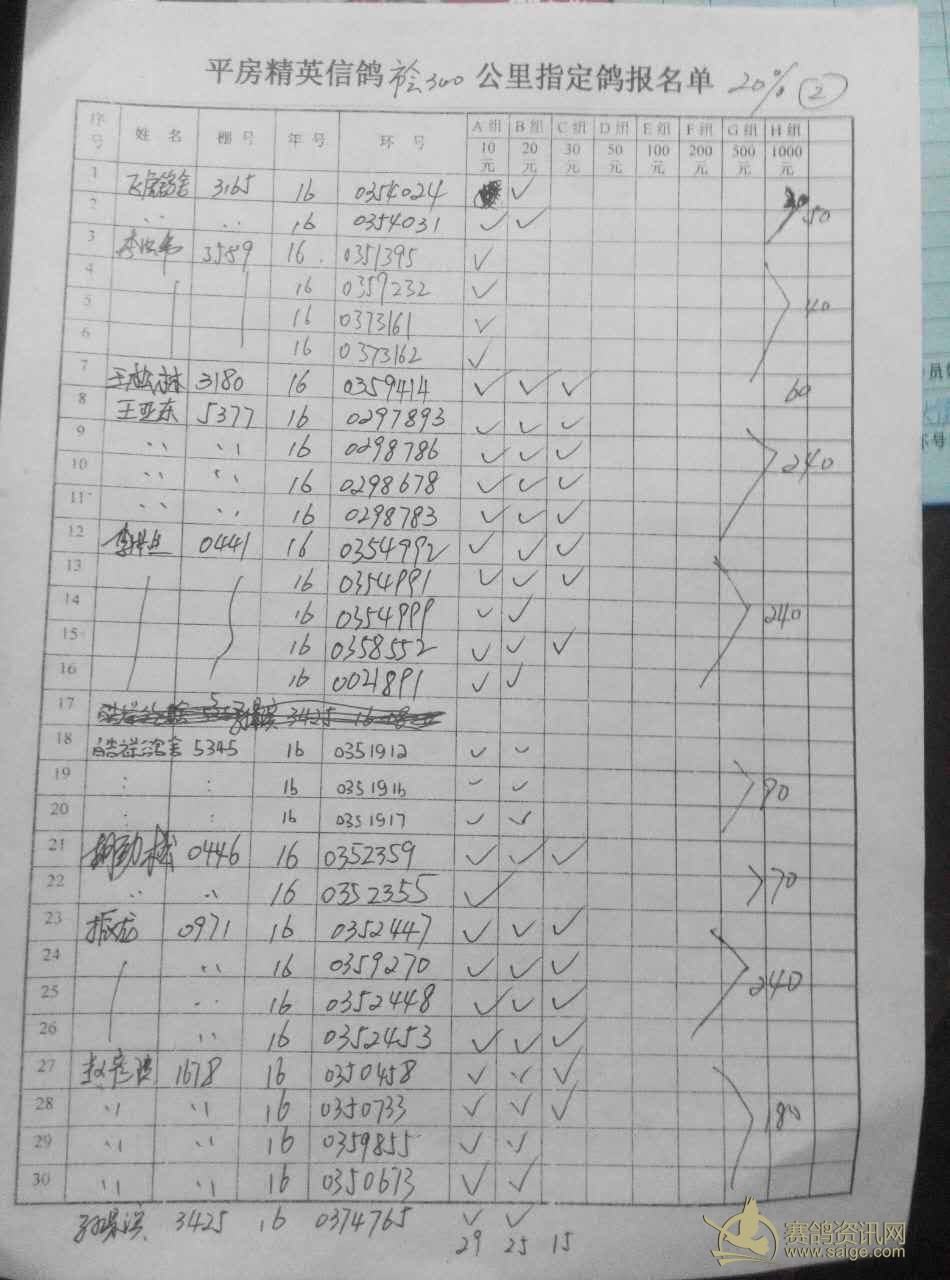 平房精英信鸽 300 公里指定鸽报名单 20% ②
序号 姓名 棚号 年号 环号 A组 B组 C组 D组 E组 F组 G组 H组
10元 20元 30元 50元 100元 200元 500元 1000元
1 3165 16 0354024 ✓
2 〃 〃 16 0354031 ✓ ✓ 50
3 3589 16 0351395 ✓
4 16 0359232 ✓ 40
5 16 0373161 ✓
6 16 0373162 ✓
7 3180 16 0359414 ✓ ✓ ✓ 60
8 王亚东 5377 16 0297893 ✓ ✓ ✓
9 〃 〃 16 0298786 ✓ ✓ ✓ 240
10 〃 〃 16 0298678 ✓ ✓ ✓
11 〃 〃 16 0298783 ✓ ✓ ✓
12 0441 16 0354992 ✓ ✓ ✓
13 16 0354991 ✓ ✓ ✓
14 16 0354999 ✓ ✓ 240
15 16 0358552 ✓ ✓ ✓
16 16 0021891 ✓ ✓
17 3425 16
18 5345 16 0351912 ✓ ✓
19 : : 16 0351916 ✓ ✓ 90
20 : : 16 0351917 ✓ ✓
21 0446 16 0352359 ✓ ✓ ✓
22 〃 〃 16 0352355 ✓ 70
23 振龙 0971 16 0352447 ✓ ✓ ✓
24 〃 16 0359270 ✓ ✓ ✓ 240
25 〃 16 0352448 ✓ ✓ ✓
26 〃 16 0352453 ✓ ✓ ✓
27 1678 16 0350458 ✓ ✓ ✓
28 〃 〃 16 0350733 ✓ ✓ ✓ 180
29 〃 〃 16 0359855 ✓ ✓
30 〃 〃 16 0350673 ✓ ✓
3425 16 0374765 ✓ ✓
29 25 15
赛鸽资讯网
www.saige.com